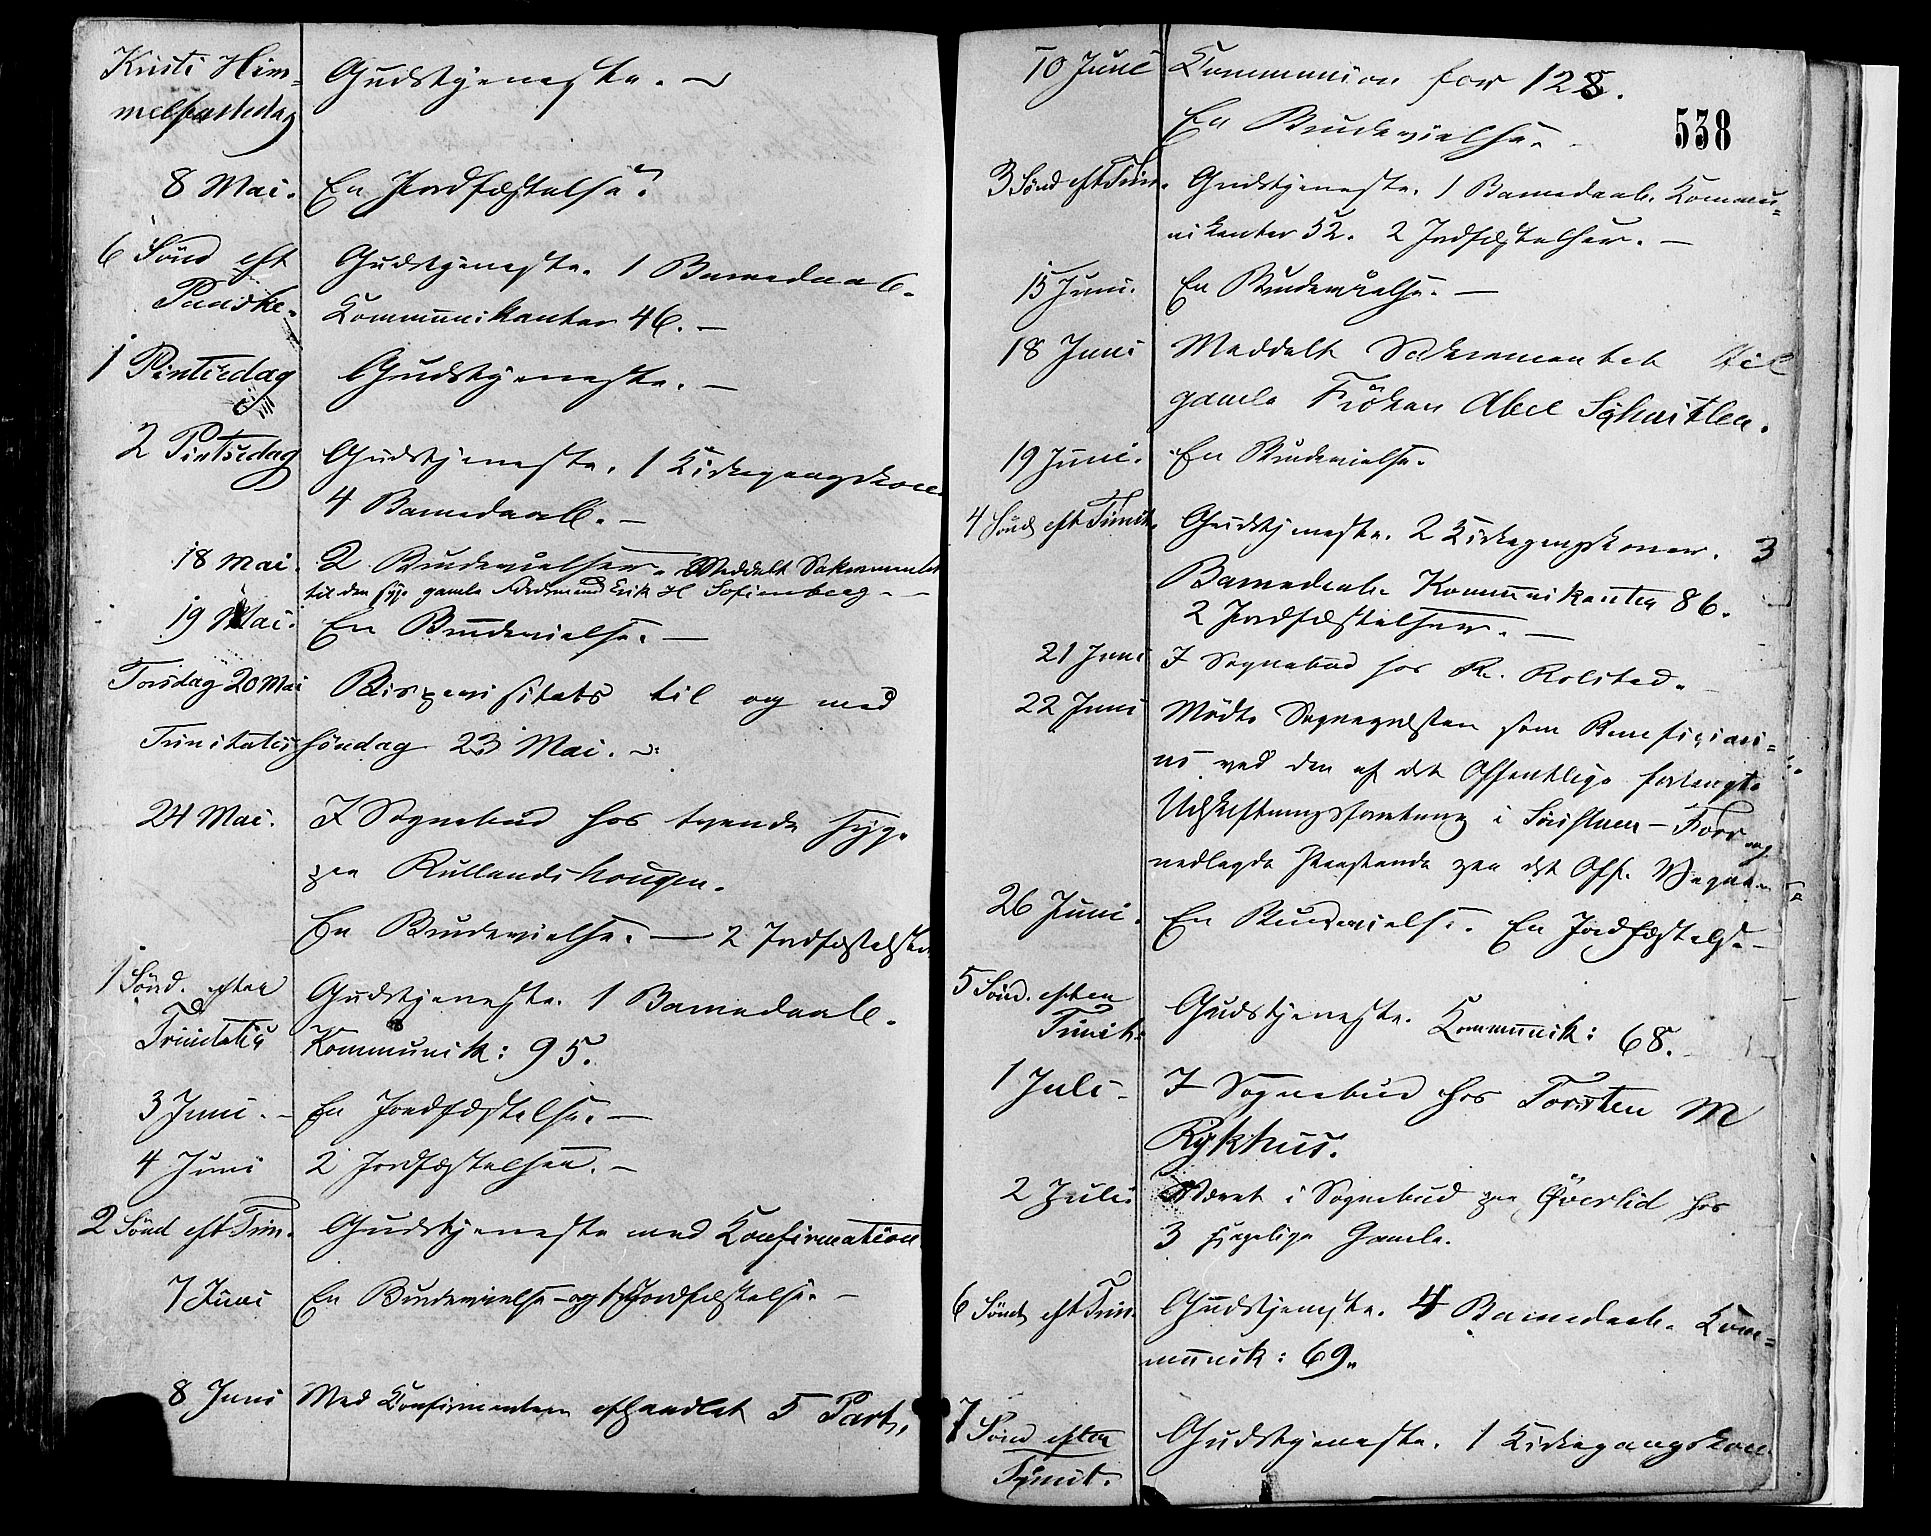 Kristi Him-
melfartsdag Gudstjeneste. –
8 Mai. En Jordfæstelse.
6 Sønd eft Gudstjeneste. 1 Barnedaab.
Paaske. Kommunikanter 46. –
1 Pintsedag Gudstjeneste. –
2 Pintsedag Gudstjeneste. 1 Kirkegangskone.
4 Barnedaab. –
18 Mai. 2 Brudevielser. Meddelt Sakramentet
til den syge gamle Erik H Sofienberg –
19 Mai. En Brudevielse. –
Torsdag 20 Mai Bispevisitats til og med
Trinitatis søndag 23 Mai. –
24 Mai. I Sognebud hos tvende syge
paa Kullandshougen.
En Brudevielse. – 2 Jordfæstelser.
1 Sønd. efter Gudstjeneste. 1 Barnedaab.
Trinitatis Kommunik: 95.
3 Juni. – En Jordfæstelse. –
4 Juni 2 Jordfæstelser. –
2 Sønd eft Trin. Gudstjeneste med Konfirmation
7 Juni En Brudevielse og 1 Jordfæstelse. –
8 Juni Med Konfirmanterne afhandlet 5 Part,
538
10 Juni Communion for 128.
En Brudevielse.
3 Sønd eft Trin. Gudstjeneste. 1 Barnedaab. Kommu-
nikanter 52. 2 Jordfæstelser. –
15 Juni. En Brudevielse. –
18 Juni Meddelt Sakramentet til
gamle Frøken Abel Schnitler.
19 Juni. En Brudevielse.
4 Sønd eft Trinit. Gudstjeneste. 2 Kirkegangskoner. 3
Barnedaab. Kommunikanter 86.
2 Jordfæstelser. –
21 Juni I Sognebud hos R. Rolstad.
22 Juni Mødte Sognepræsten som Beneficiari-
us ved den af det Offentlige forlangte
Udskiftningsforretning i og
nedlagde Paastande paa det Off. Vegne.
26 Juni. En Brudevielse. En Jordfæstelse –
5 Sønd. efter Gudstjeneste. Kommunik: 68.
Trinit.
1 Juli – I Sognebud hos Torsten M
Rykhus.
2 Juli Været i Sognebud paa Øverlid hos
3 sygelige Gamle.
6 Sønd eft Trin. Gudstjeneste. 4 Barnedaab. Kom-
munik: 69.
7 Sønd efter Gudstjeneste. 1 Kirkegangskone
Trinit.